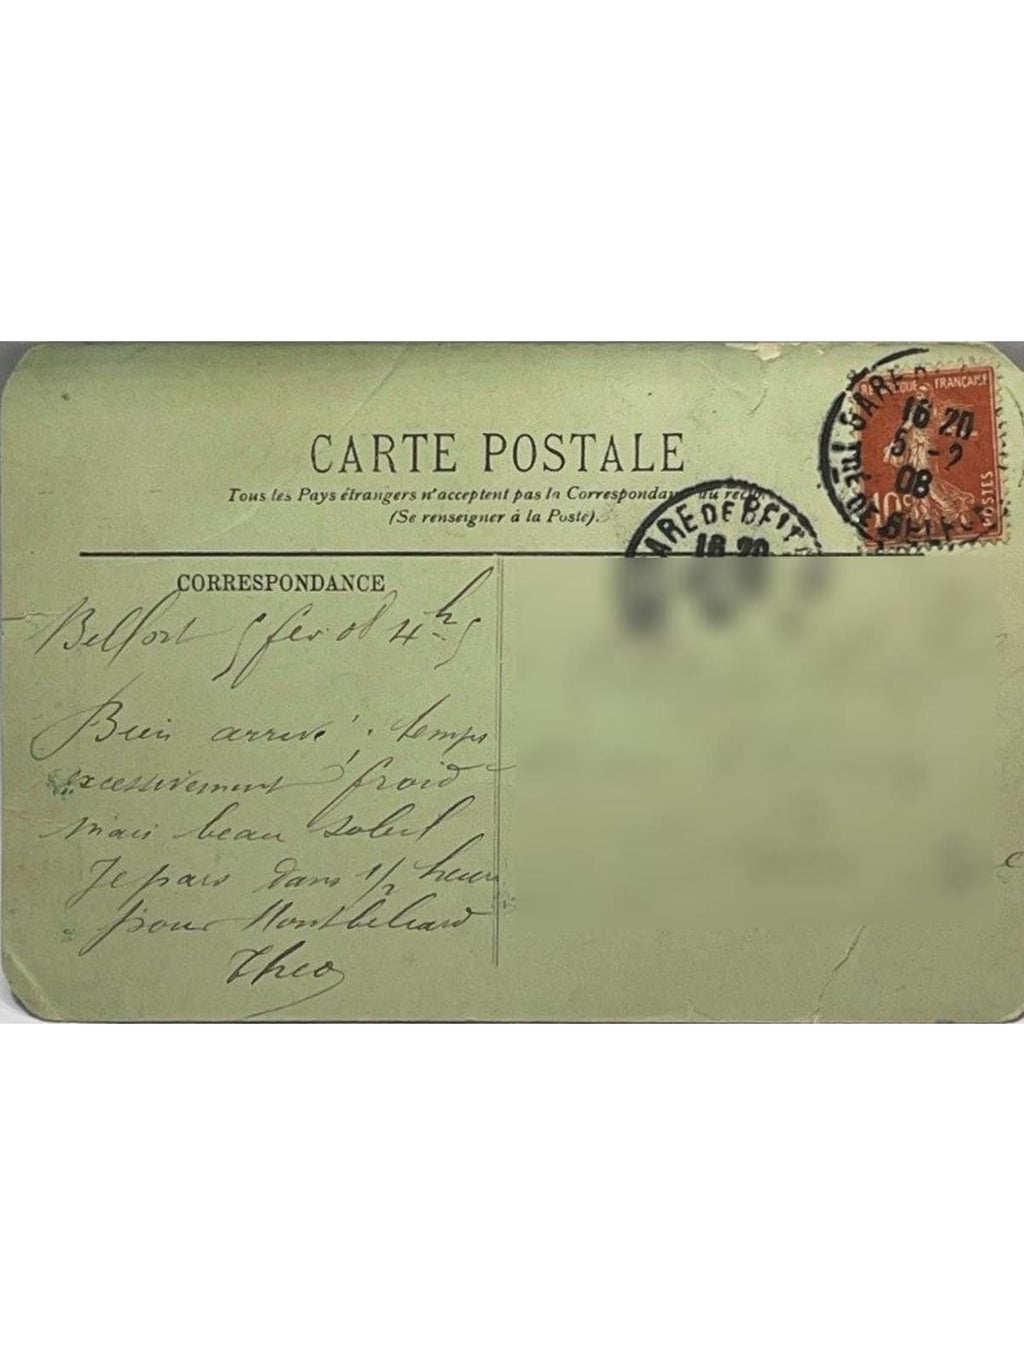 CARTE POSTALE
Tous les Pays étrangers n'acceptent pas la Correspondan au rec
(Se renseigner à la Poste).
RE QUE FRANÇAISE
10c
POSTES
GARE DE BELFO
16 20
5 -2
08
ARE DE BELF
16 20
CORRESPONDANCE
Belfort 5 fev 08 4h 5
Bien arrivé ; temps
excessivement froid
mais beau soleil
Je pars dans 1/2 heure
pour Montbeliard
Theo